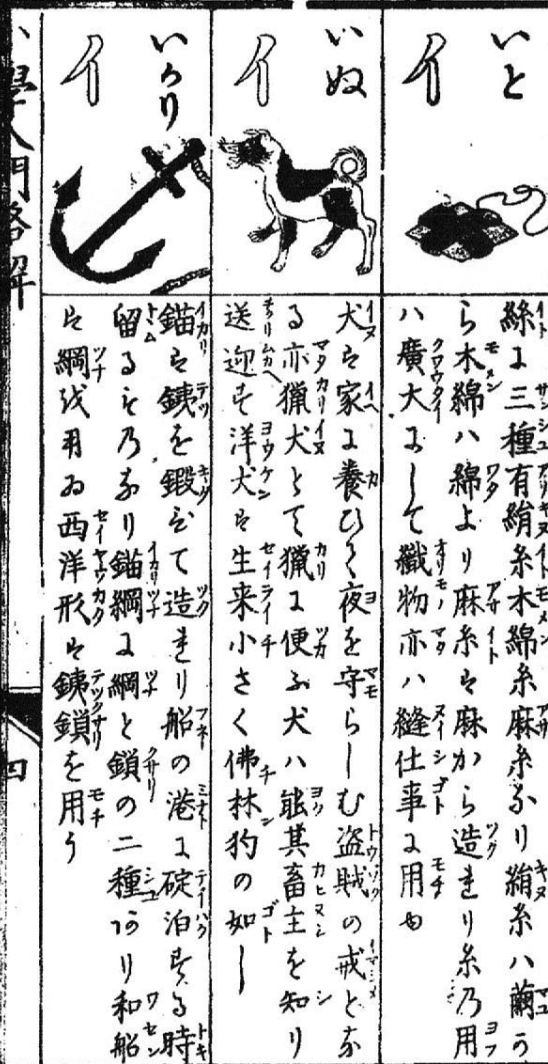 いと
イ
絲に三種有絹糸木綿糸麻糸なり絹糸ハ繭か
ら木綿ハ綿より麻糸は麻から造れり糸乃用
ハ廣大にして織物亦ハ縫仕事に用ゆ
いぬ
イ
犬は家に養ひて夜を守らしむ盗賊の戒とな
る亦猟犬とて猟に便ふ犬ハ能其畜主を知り
送迎す洋犬は生来小さく佛林狗の如し
いかり
イ
錨は銕を鍛ひて造れり船の港に碇泊する時
留るもの乃なり錨綱に綱と鎖の二種あり和船
は綱を用ゐ西洋形は銕鎖を用う
小學入門略解
四